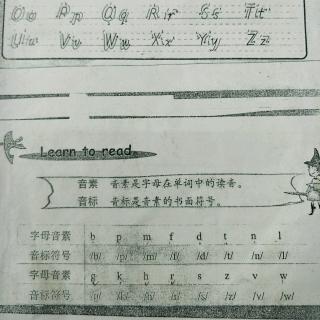 Oo Pp Qq Rr Ss Tt
Uu Vv Ww Xx Yy Zz
Learn to read
音素 音素是字母在单词中的读音。
音标 音标是音素的书面符号。
字母音素 b p m f d t n l
音标符号 /b/ /p/ /m/ /f/ /d/ /t/ /n/ /l/
字母音素 g k h r s z v w
音标符号 /g/ /k/ /h/ /r/ /s/ /z/ /v/ /w/